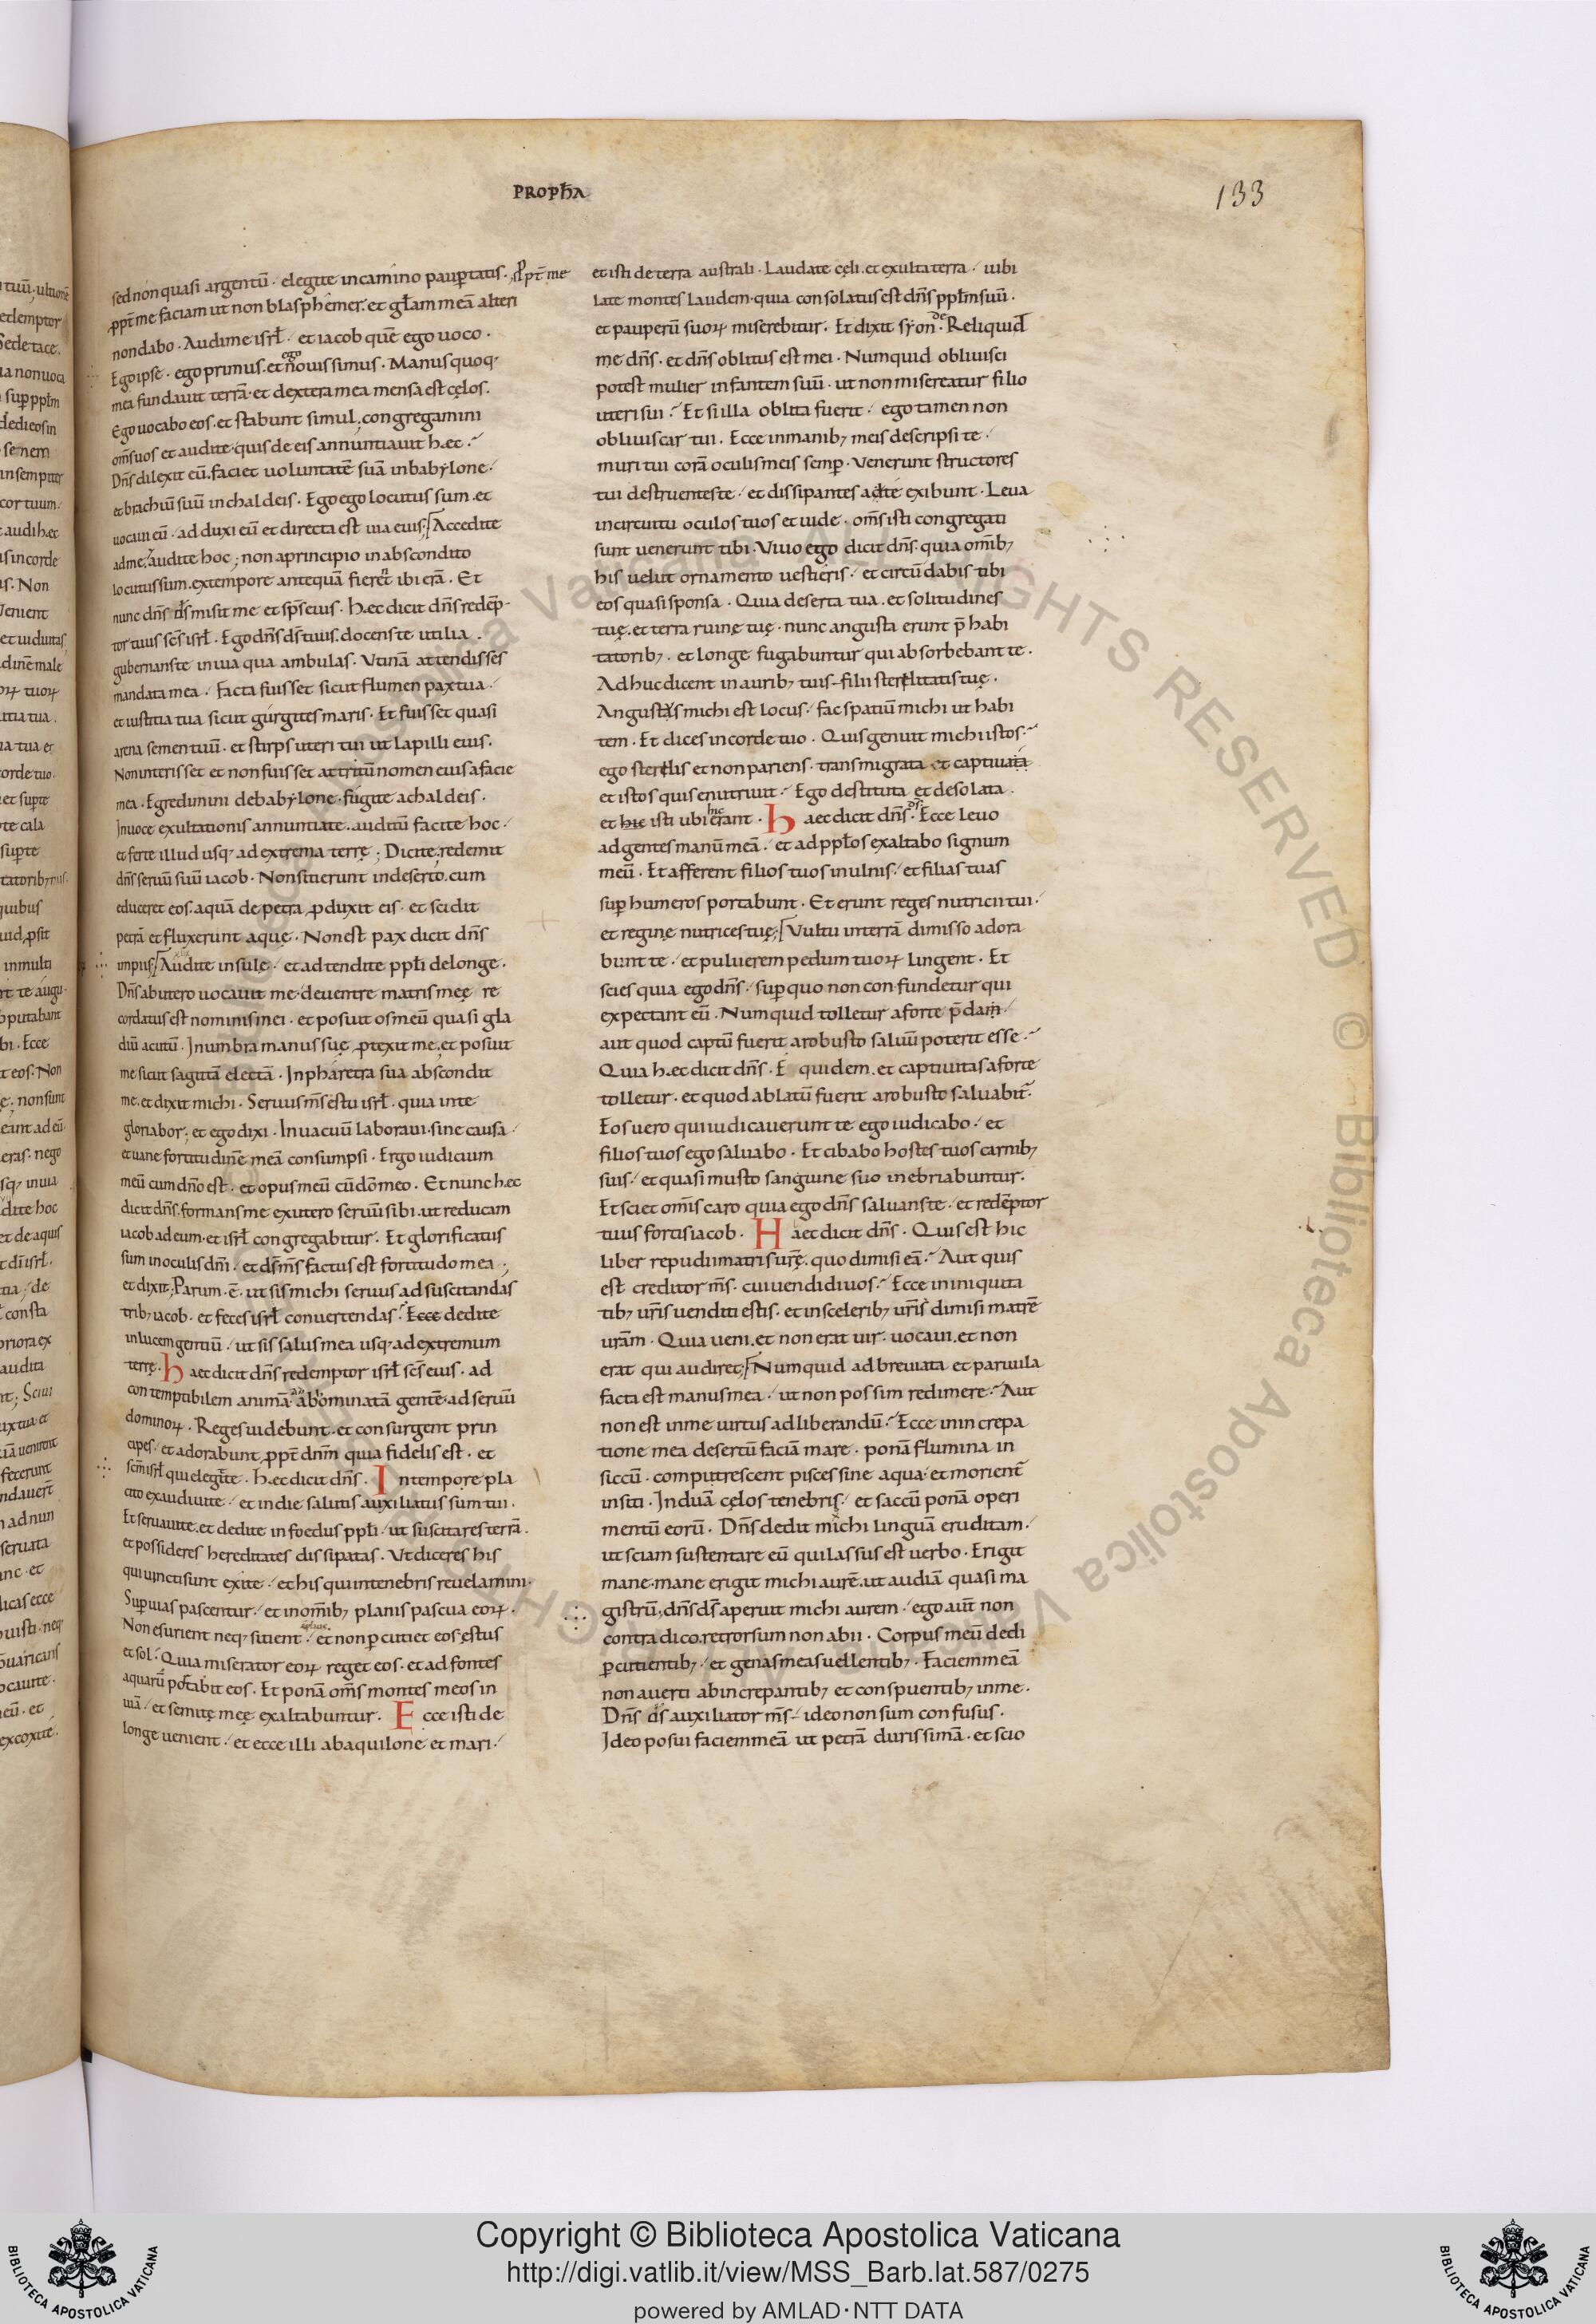 PROPħA
133
sed non quasi argentū · elegi te in camino paup̱tatis · ꝓpt̄ me
ꝓpt̄ me faciam ut non blasphemer · et gl̄am meā alteri
non dabo · Audi me isrł · et iacob quē ego uoco ·
Ego ipse · ego primus · et ego nouissimus · Manus quoq;
mea fundauit terrā · et dextera mea mensa est cęlos ·
Ego uocabo eos · et stabunt simul · congregamini
om̄s uos et audite · quis de eis annuntiauit hęc ·
Dn̄s dilexit eū · faciet uoluntatē suā in babylone ·
et brachiū suū in chaldeis · Ego ego locutus sum · et
uocaui eū · adduxi eū et directa est uia eius; Accedite
ad me · & audite hoc; non a principio in abscondito
locutus sum · ex tempore antequā fierent ibi erā · Et
nunc dn̄s ds̄ misit me et sp̄s eius · Hęc dicit dn̄s redēp-
tor tuus sc̄s isrł · Ego dn̄s ds̄ tuus · docens te utilia ·
gubernans te in uia qua ambulas · Vtinā attendisses
mandata mea · Facta fuisset sicut flumen pax tua ·
et iustitia tua sicut gurgites maris · Et fuisset quasi
arena semen tuū · et stirps uteri tui ut lapilli eius ·
Non interisset et non fuisset attritū nomen eius a facie
mea · Egredimini de babylone · fugite a chaldeis ·
In uoce exultationis annuntiate · auditū facite hoc ·
et ferte illud usq; ad extrema terrę; Dicite · redemit
dn̄s seruū suū iacob · Non sitierunt in deserto · cum
educeret eos · aquā de petra ꝓduxit eis · et scidit
petrā et fluxerunt aquę · Non est pax dicit dn̄s
impiis; Audite insulę · et adtendite ppł̄i de longe ·
Dn̄s ab utero uocauit me · de uentre matris meę re
cordatus est nominis mei · et posuit os meū quasi gla
diū acutū · In umbra manus suę ꝓtexit me · et posuit
me sicut sagittā electā · In pharetra sua abscondit
me · et dixit michi · Seruus m̄s es tu isrł · quia in te
gloriabor; et ego dixi · In uacuū laboraui · sine causa ·
et uane fortitudinē meā consumpsi · Ergo iudicium
meū cum dn̄o est · et opus meū cū dō meo · Et nunc hęc
dicit dn̄s · formans me ex utero seruū sibi · ut reducam
iacob ad eum · et isrł congregabitur · Et glorificatus
sum in oculis dn̄i · et ds̄ m̄s factus est fortitudo mea ·
et dixit; Parum · ē · ut sis michi seruus ad suscitandas
trib; iacob · et feces isrł conuertendas · Ecce dedi te
in lucem gentiū · ut sis salus mea usq; ad extremum
terrę · Haec dicit dn̄s redemptor isrł sc̄s eius · ad
contemptibilem animā · ad abominatā gentē · ad seruū
dominoꝝ · Reges uidebunt · et consurgent prin
cipes · et adorabunt ꝓpt̄ dn̄m quia fidelis est · et
sc̄m isrł qui elegit te · Hęc dicit dn̄s · In tempore pla
cito exaudiui te · et in die salutis auxiliatus sum tui ·
Et seruaui te · et dedi te in foedus ppł̄i · ut suscitares terrā ·
et possideres hereditates dissipatas · Vt diceres his
qui uincti sunt exite · et his qui in tenebris reuelamini ·
Sup̱ uias pascentur · et in om̄ib; planis pascua eoꝝ ·
Non esurient neq; sitient · et non ꝑcutiet eos ęstus
et sol · Quia miserator eoꝝ reget eos · et ad fontes
aquarū potabit eos · Et ponā om̄s montes meos in
uiā · et semitę meę exaltabuntur · Ecce isti de
longe uenient · et ecce illi ab aquilone et mari ·
et isti de terra australi · Laudate cęli · et exulta terra · iubi
late montes laudem · quia consolatus est dn̄s ppł̄m suū ·
et pauperū suoꝝ miserebitur · Et dixit syon · Reliquid
me dn̄s · et dn̄s oblitus est mei · Numquid obliuisci
potest mulier infantem suū · ut non misereatur filio
uteri sui · Et si illa oblita fuerit · ego tamen non
obliuiscar tui · Ecce in manib; meis descripsi te ·
muri tui corā oculis meis semp̱ · Venerunt structores
tui destruentes te · et dissipantes a te exibunt · Leua
in circuitu oculos tuos et uide · om̄s isti congregati
sunt uenerunt tibi · Viuo ego dicit dn̄s · quia om̄ib;
his uelut ornamento uestieris · et circūdabis tibi
eos quasi sponsa · Quia deserta tua · et solitudines
tuę · et terra ruinę tuę · nunc angusta erunt p̄ habi
tatorib; · et longe fugabuntur qui absorbebant te ·
Adhuc dicent in aurib; tuis · filii sterilitatis tuę ·
Angustus michi est locus · fac spatiū michi ut habi
tem · Et dices in corde tuo · Quis genuit michi istos ·
ego sterilis et non pariens · transmigrata et captiuata
et istos quis enutriuit · Ego destituta et desolata ·
et hic isti ubi hic erant · Haec dicit dn̄s ds̄ · Ecce leuo
ad gentes manū meā · et ad ppł̄os exaltabo signum
meū · Et afferent filios tuos in ulnis · et filias tuas
sup̱ humeros portabunt · Et erunt reges nutricii tui ·
et reginę nutrices tuę; Vultu in terrā dimisso adora
bunt te · et puluerem pedum tuoꝝ lingent · Et
scies quia ego dn̄s · sup̱ quo non confundetur qui
expectant eū · Numquid tolletur a forte p̄da ·
aut quod captū fuerit a robusto saluū poterit esse ·
Quia hęc dicit dn̄s · E quidem · et captiuitas a forte
tolletur · et quod ablatū fuerit a robusto saluabit̄ ·
Eos uero qui iudicauerunt te ego iudicabo · et
filios tuos ego saluabo · Et cibabo hostes tuos carnib;
suis · et quasi musto sanguine suo inebriabuntur ·
Et sciet om̄is caro quia ego dn̄s saluans te · et redēptor
tuus fortis iacob · Haec dicit dn̄s · Quis est hic
liber repudii matris ur̄ę · quo dimisi eā · Aut quis
est creditor m̄s · cui uendidi uos · Ecce in iniquita
tib; ur̄is uenditi estis · et in scelerib; ur̄is dimisi matrē
ur̄am · Quia ueni · et non erat uir · uocaui · et non
erat qui audiret; Numquid adbreuiata et paruula
facta est manus mea · ut non possim redimere · Aut
non est in me uirtus ad liberandū · Ecce in increpa
tione mea desertū faciā mare · ponā flumina in
siccū · computrescent pisces sine aqua · et morient̄
in siti · Induā cęlos tenebris · et saccū ponā operi
mentū eorū · Dn̄s dedit michi linguā eruditam ·
ut sciam sustentare eū qui lassus est uerbo · Erigit
mane · mane erigit michi aurē · ut audiā quasi ma
gistrū; dn̄s ds̄ aperuit michi aurem · ego aūt non
contradico · retrorsum non abii · Corpus meū dedi
ꝑcutientib; · et genas meas uellentib; · Faciem meā
non auerti ab increpantib; et conspuentib; in me ·
Dn̄s ds̄ auxiliator m̄s · ideo non sum confusus ·
Ideo posui faciem meā ut petrā durissimā · et scio
Copyright © Biblioteca Apostolica Vaticana
http://digi.vatlib.it/view/MSS_Barb.lat.587/0275
powered by AMLAD·NTT DATA